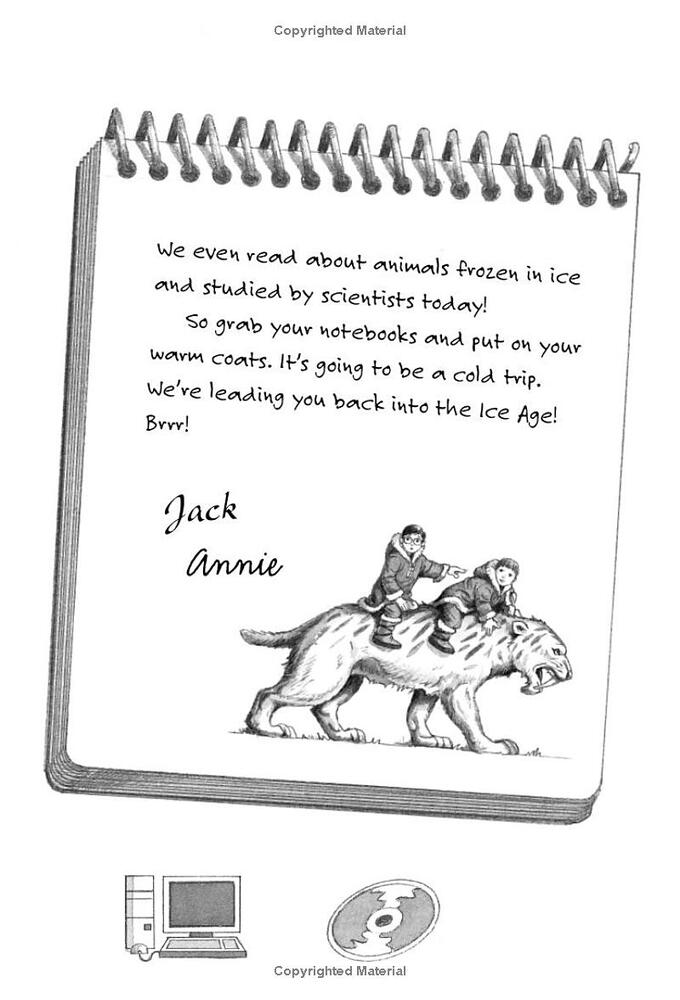 Copyrighted Material
We even read about animals frozen in ice
and studied by scientists today!
So grab your notebooks and put on your
warm coats. It's going to be a cold trip.
We're leading you back into the Ice Age!
Brrr!
Jack
Annie
Copyrighted Material